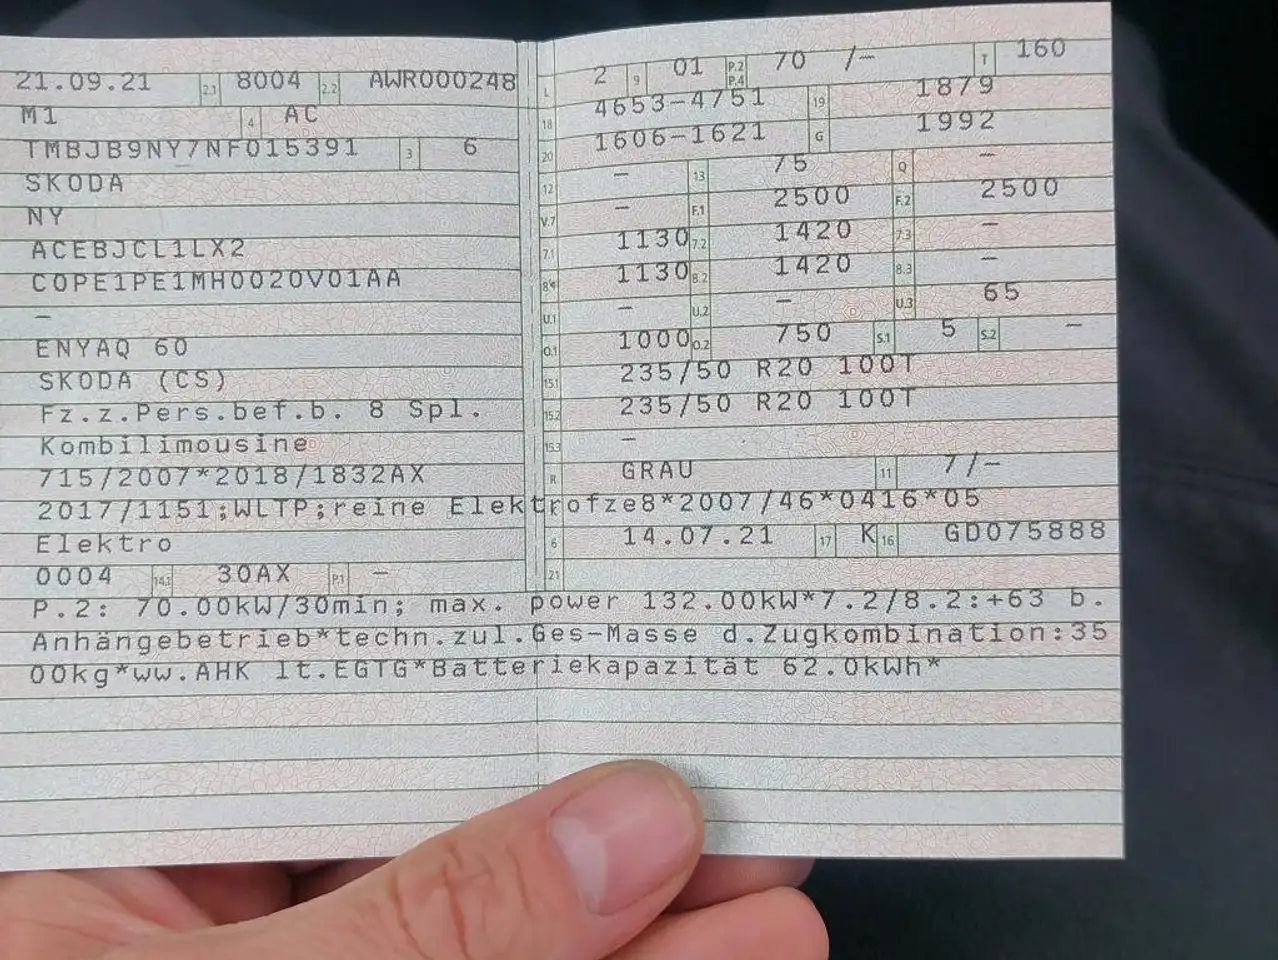 21.09.21 2.1 8004 2.2 AWR000248
M1 4 AC
TMBJB9NY7NF015391 3 6
SKODA
NY
ACEBJCL1LX2
COPE1PE1MH0020V01AA
–
ENYAQ 60
SKODA (CS)
Fz.z.Pers.bef.b. 8 Spl.
Kombilimousine
715/2007*2018/1832AX
2017/1151;WLTP;reine Elektrofze8*2007/46*0416*05
Elektro
0004 14.1 30AX P.1 –
L 2 9 01 P.2 P.4 70 /– T 160
18 4653–4751 19 1879
20 1606–1621 G 1992
12 – 13 75 Q –
V.7 – F.1 2500 F.2 2500
7.1 1130 7.2 1420 7.3 –
8.1 1130 8.2 1420 8.3 –
U.1 – U.2 – U.3 65
O.1 1000 O.2 750 S.1 5 S.2 –
15.1 235/50 R20 100T
15.2 235/50 R20 100T
15.3 –
R GRAU 11 7/–
6 14.07.21 17 K 16 GD075888
21
P.2: 70.00kW/30min; max. power 132.00kW*7.2/8.2:+63 b.
Anhängebetrieb*techn.zul.Ges–Masse d.Zugkombination:35
00kg*ww.AHK lt.EGTG*Batteriekapazität 62.0kWh*